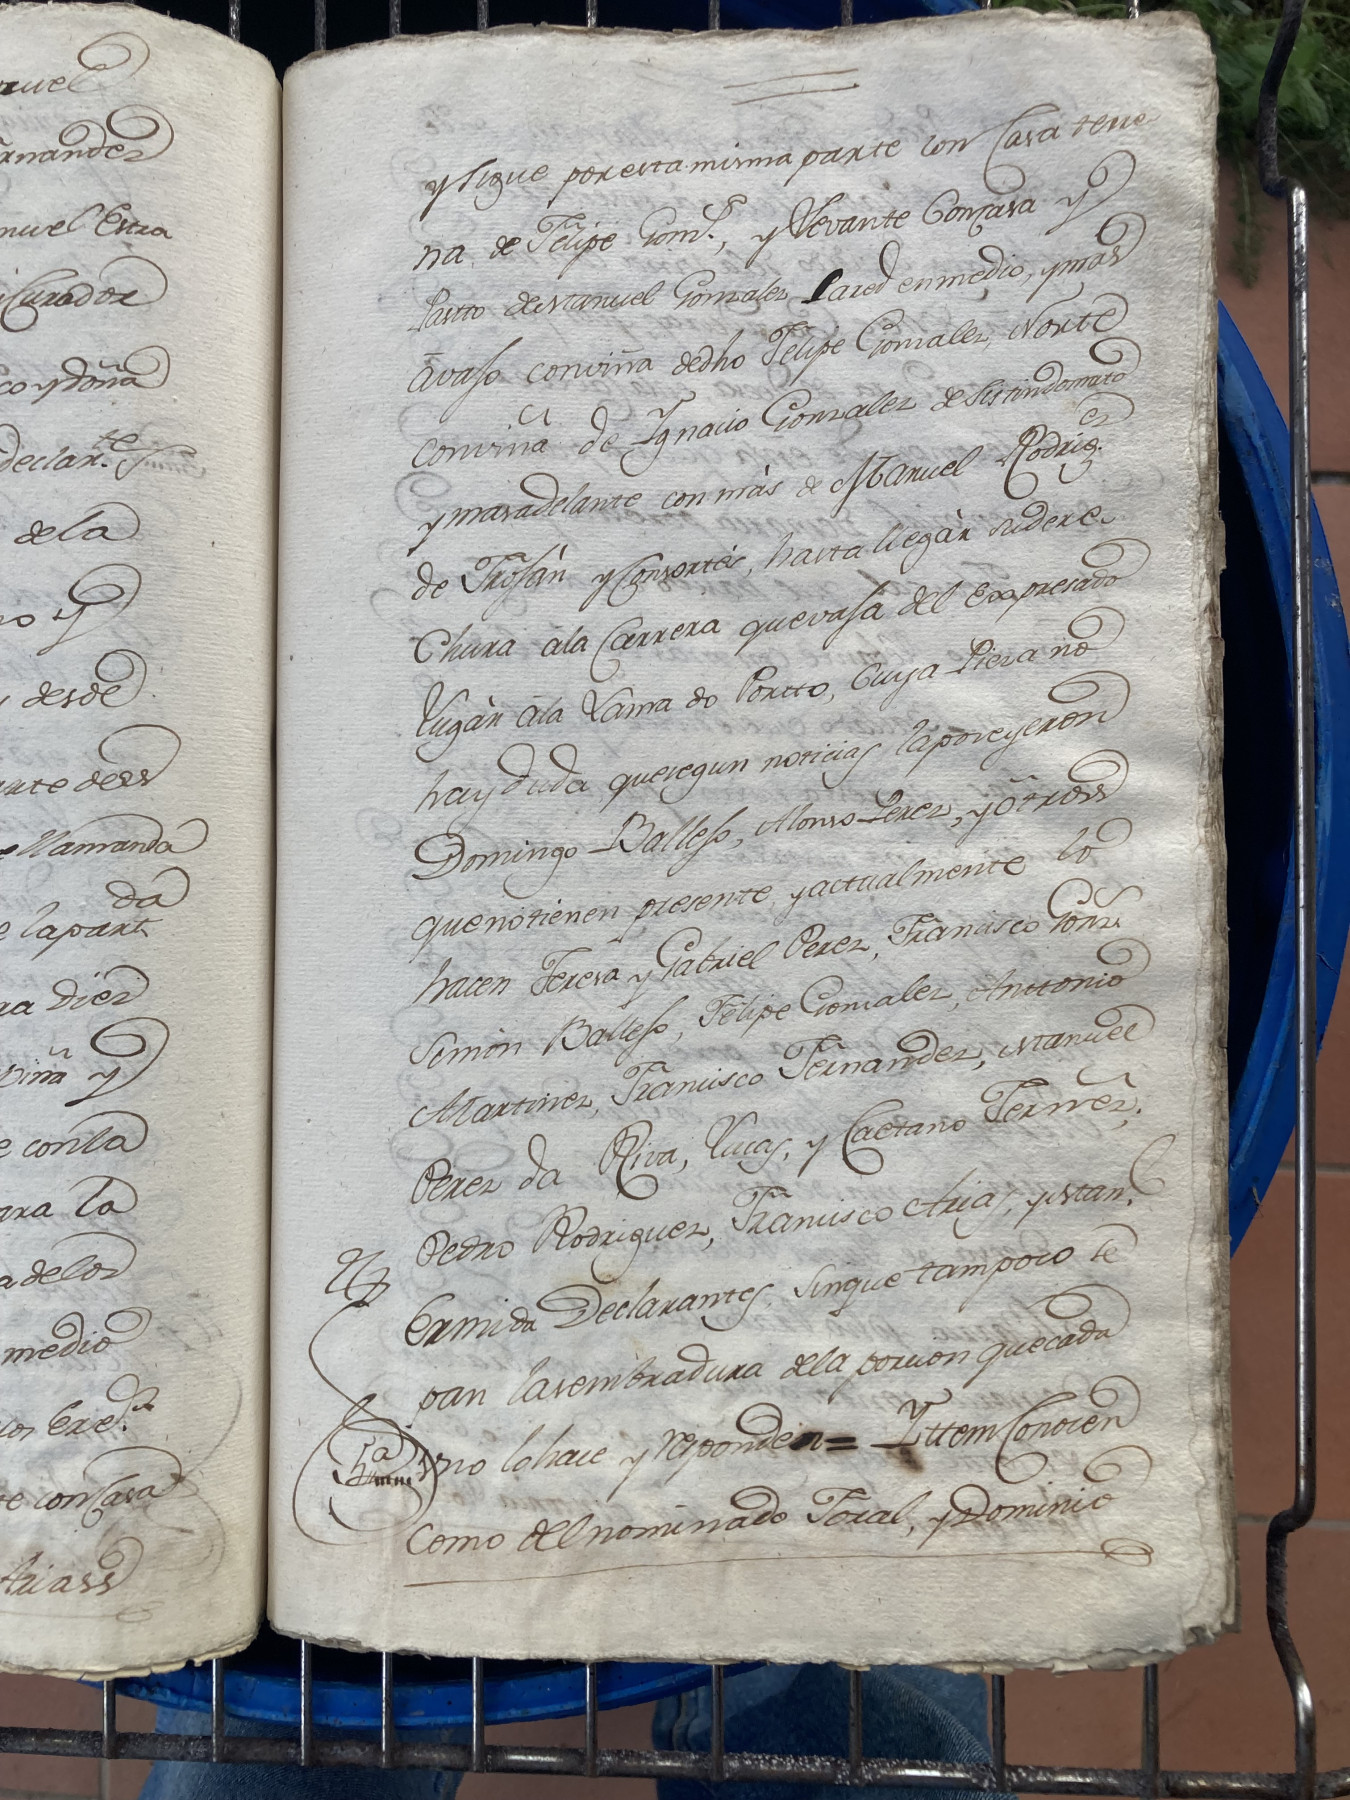 ruel
rnandez
nuel Estra
Curador
co y doña
declar.te
de la
no y
y desde
rte de ss
e llamanda
da
e la part.
ra diez
viña y
e con la
ara la
a de los
medio
os Ered.s
te con Casa
Ariass
y sigue por esta misma parte con Casa terre
na de Felipe Gonz.s, y Levante Con Casa y
Pastto de Manuel Gonzalez Pared enmedio, y mas
avaso con viña de dho Felipe Gonzalez, Norte
con viña de Ygnacio Gonzalez de Sistin do mato
y mas adelante con más de Manuel Rodrig.ez
de Froján y Consortes, hasta llegàr su dere
Chura ála Carrera que vasa del Expresado
Lugàr ála Lama do Portto, Cuya Pieza no
hay duda que segun noticias la poseyeron
Domingo Balleso, Alonso Perez, y ótross
que no tienen presente, y actualmente lo
hacen Teresa y Gabriel Perez, Francisco Gonz.
Simon Balleso, Felipe Gonzalez, Anttonio
Martinez, Francisco Fernandez, Manuel
Perez da Riva, Lucas, y Caetano Fernez,
Pedro Rodriguez, Francisco Arias, y Man.l
Ermida Declarantes, sin que tampoco se
pan la sembradura de la porcion que cada
5a
uno lo hace y responden = Yttem Conocen
como del nominado Foral, y Dominio